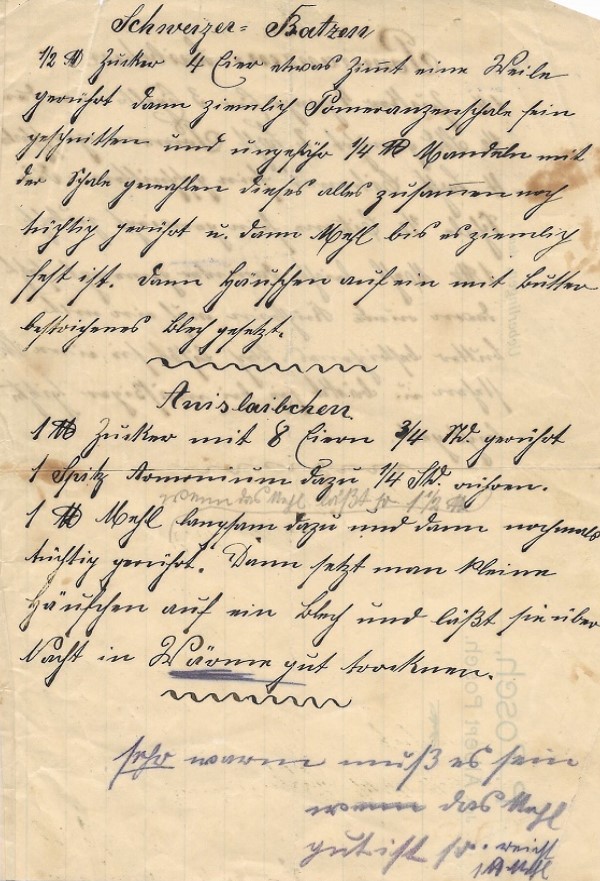 Schweizer-Batzen
1/2 ℔ Zucker 4 Eier etwas Zimmt eine Weile
gerührt dann ziemlich Pomeranzenschale fein
geschnitten und ungefähr 1/4 ℔ Mandeln mit
der Schale gemahlen dieses alles zusammen noch
tüchtig gerührt u. dann Mehl bis es ziemlich
fest ist. dann Häufchen auf ein mit Butter
bestrichenes Blech gesetzt.
Anislaibchen
1 ℔ Zucker mit 8 Eiern 3/4 Std. gerührt
1 Spitz Armonium dazu 1/4 Std. rühren.
wenn das Mehl läßt so 1 1/2 ℔
1 ℔ Mehl langsam dazu und dann nochmals
tüchtig gerührt. Dann setzt man kleine
Häufchen auf ein Blech und läßt sie über
Nacht in Wärme gut trocknen.
sehr warm muß es sein
wenn das Mehl
gut ist so reicht
1 ℔ Mehl